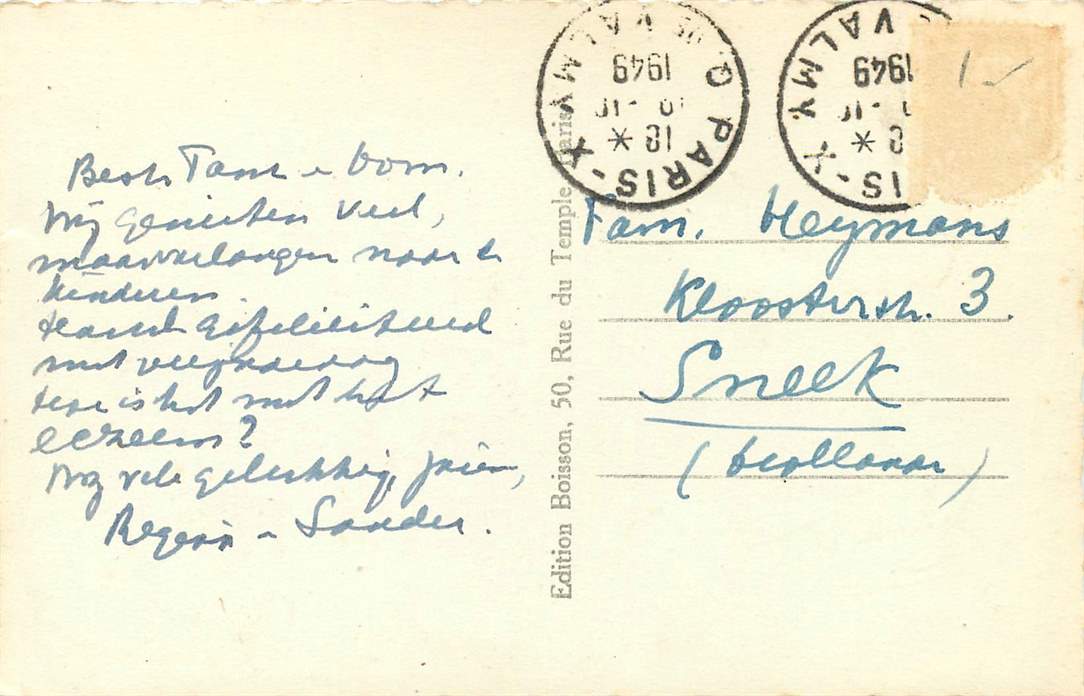 Beste Tante e Oom.
Wij genieten veel,
maar verlangen naar de
kinderen.
Harte gefeliciteerd
met verjaardag
Hoe is het met het
eczeem?
Nog vele gelukkige jaren,
Regina e Sander.
Edition Boisson, 50, Rue du Temple, Paris
PARIS-X
VALMY
18
1949
PARIS-X
VALMY
1949
Fam. Heymans
Kloosterstr. 3.
Sneek
(Holland)